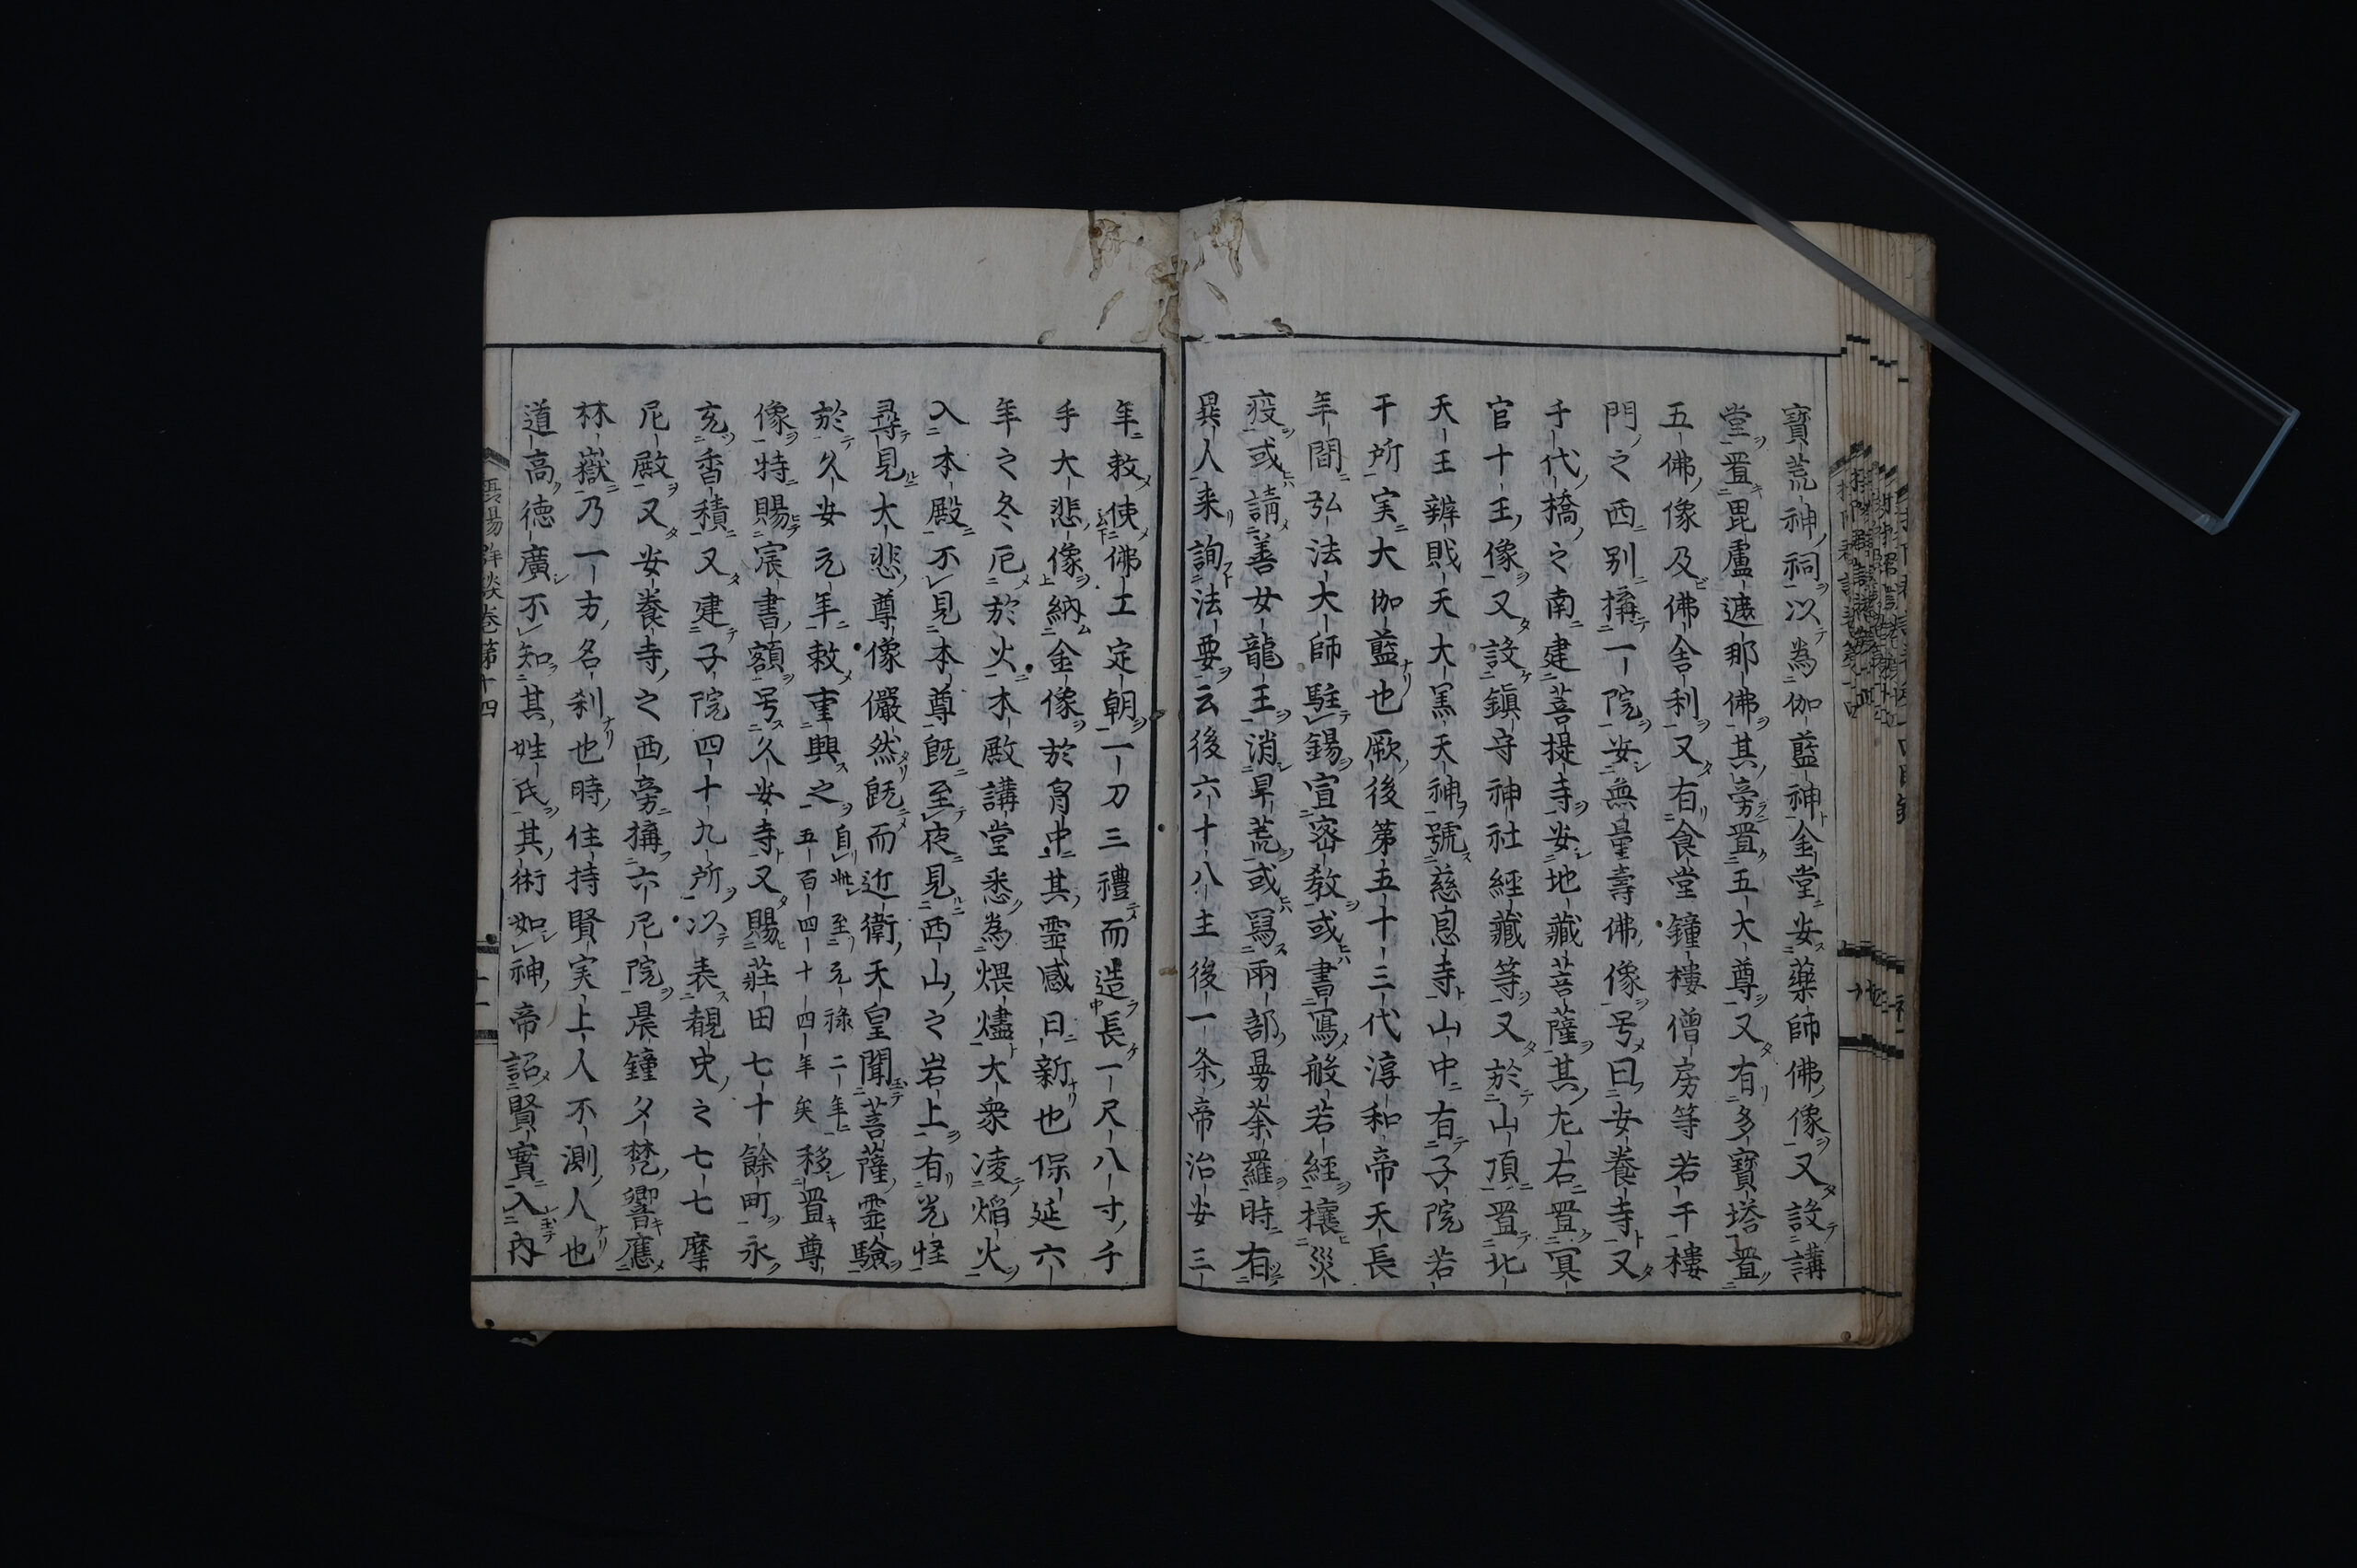 寶荒神祠以為伽藍神金堂安藥師佛像又設講
堂置毘盧遮那佛其旁置五大尊又有多寶塔置
五佛像及佛舎利又有食堂鐘樓僧房等若干樓
門之西别搆一院安無量壽佛像号曰安養寺又
千代橋之南建菩提寺安地藏菩薩其左右置冥
官十王像又設鎮守神社經藏等又於山頂置北
天王辨戝天大黒天神號慈恩寺山中有子院若
干所実大伽藍也厥後第五十三代淳和帝天長
年間弘法大師駐錫宣密教或書寫般若經禳災
疫或請善女龍王消旱荒或寫兩部曼荼羅時有
異人来詢法要云後六十八主後一条帝治安三
年敕使佛工定朝一刀三禮而造長一尺八寸千
手大悲像納金像於胷中其霊感日新也保延六
年之冬厄於火本殿講堂悉為煨燼大衆凌焔火
入本殿不見本尊既至夜見西山之岩上有光怪
尋見大悲尊像儼然既而近衛天皇聞菩薩霊驗
於久安元年敕重興之自此至元祿二年五百四十四年矣移置尊
像特賜宸書額号久安寺又賜莊田七十餘町永
充香積又建子院四十九所以表覩史之七七摩
尼殿又安養寺之西旁搆六尼院晨鐘夕梵響應
林嶽乃一方名刹也時住持賢実上人不測人也
道高徳廣不知其姓氏其術如神帝詔賢實入内
群談巻第十四
十一